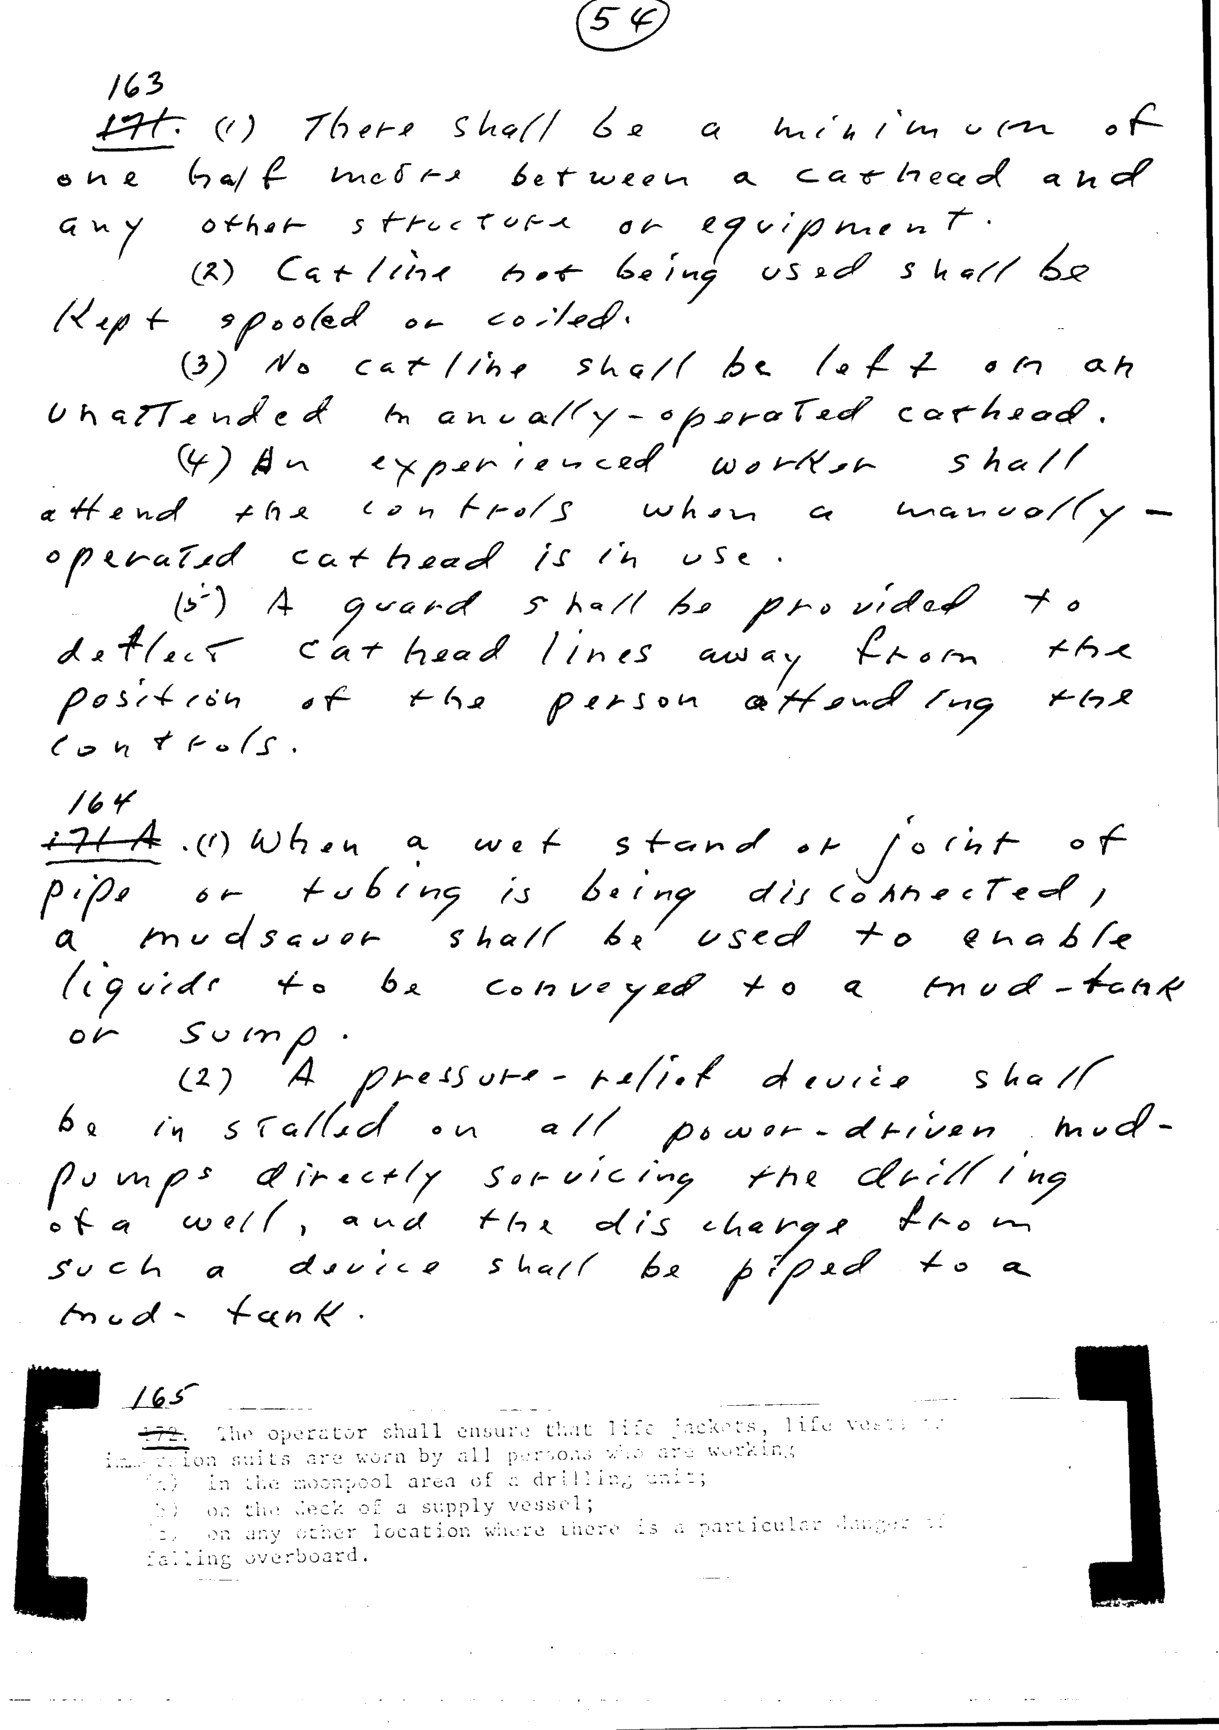 54
163
171. (1) There shall be a minimum of
one half metre between a cathead and
any other structure or equipment.
(2) Catline not being used shall be
kept spooled or coiled.
(3) No catline shall be left on an
unattended manually-operated cathead.
(4) An experienced worker shall
attend the controls when a manually-
operated cathead is in use.
(5) A guard shall be provided to
deflect cathead lines away from the
position of the person attending the
controls.
164
171 A. (1) When a wet stand or joint of
pipe or tubing is being disconnected,
a mudsaver shall be used to enable
liquids to be conveyed to a mud-tank
or sump.
(2) A pressure-relief device shall
be installed on all power-driven mud-
pumps directly servicing the drilling
of a well, and the discharge from
such a device shall be piped to a
mud-tank.
165
172. The operator shall ensure that life jackets, life vests or
suits are worn by all persons who are working
(a) in the moonpool area of a drilling unit;
(b) on the deck of a supply vessel;
(c) on any other location where there is a particular danger of
falling overboard.